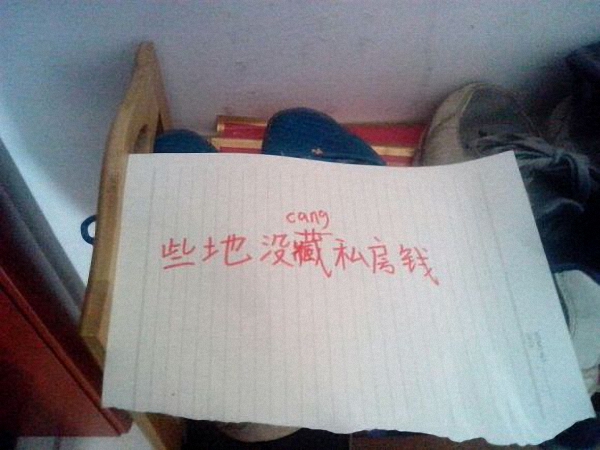 cang
些地没藏私房钱